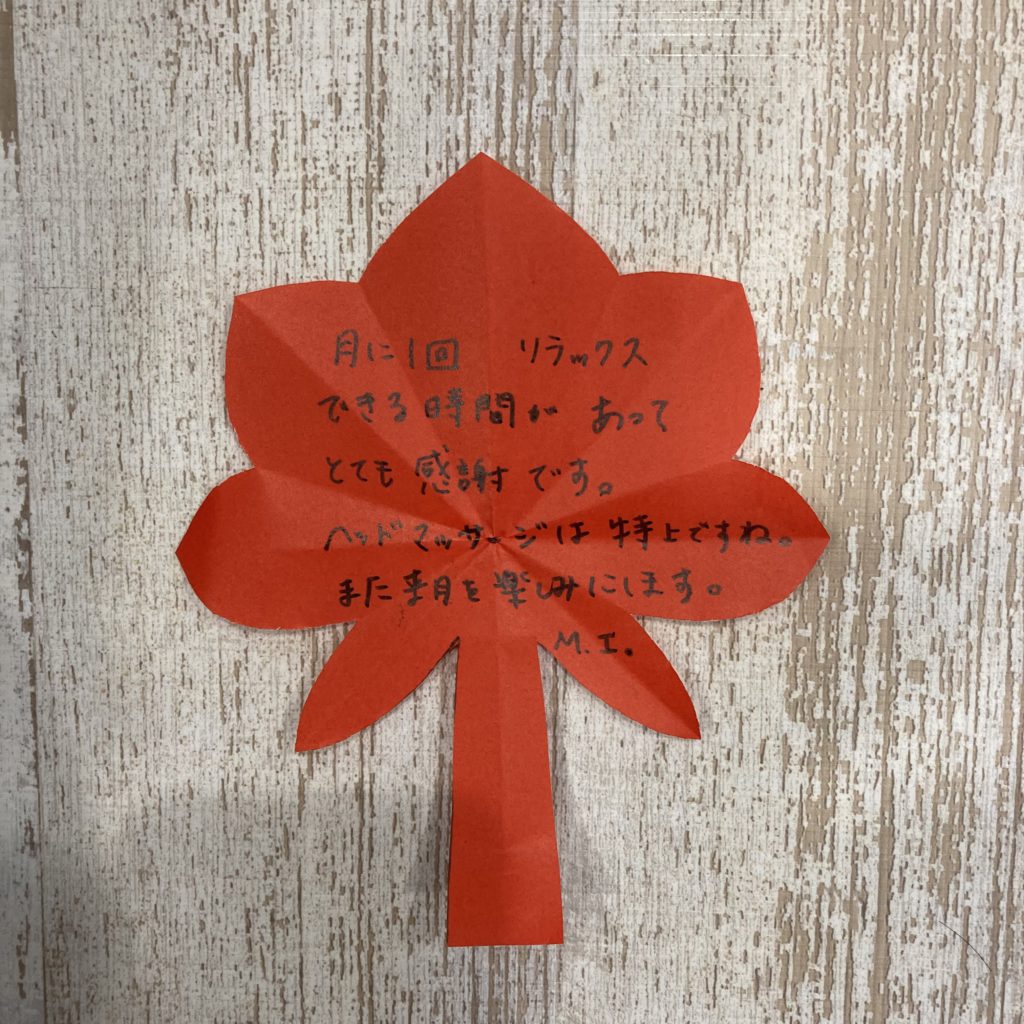 月に1回 リラックス
できる時間が あって
とても 感謝 です。
ヘッドマッサージは 特上ですね。
また来月を楽しみにします。
M.I.